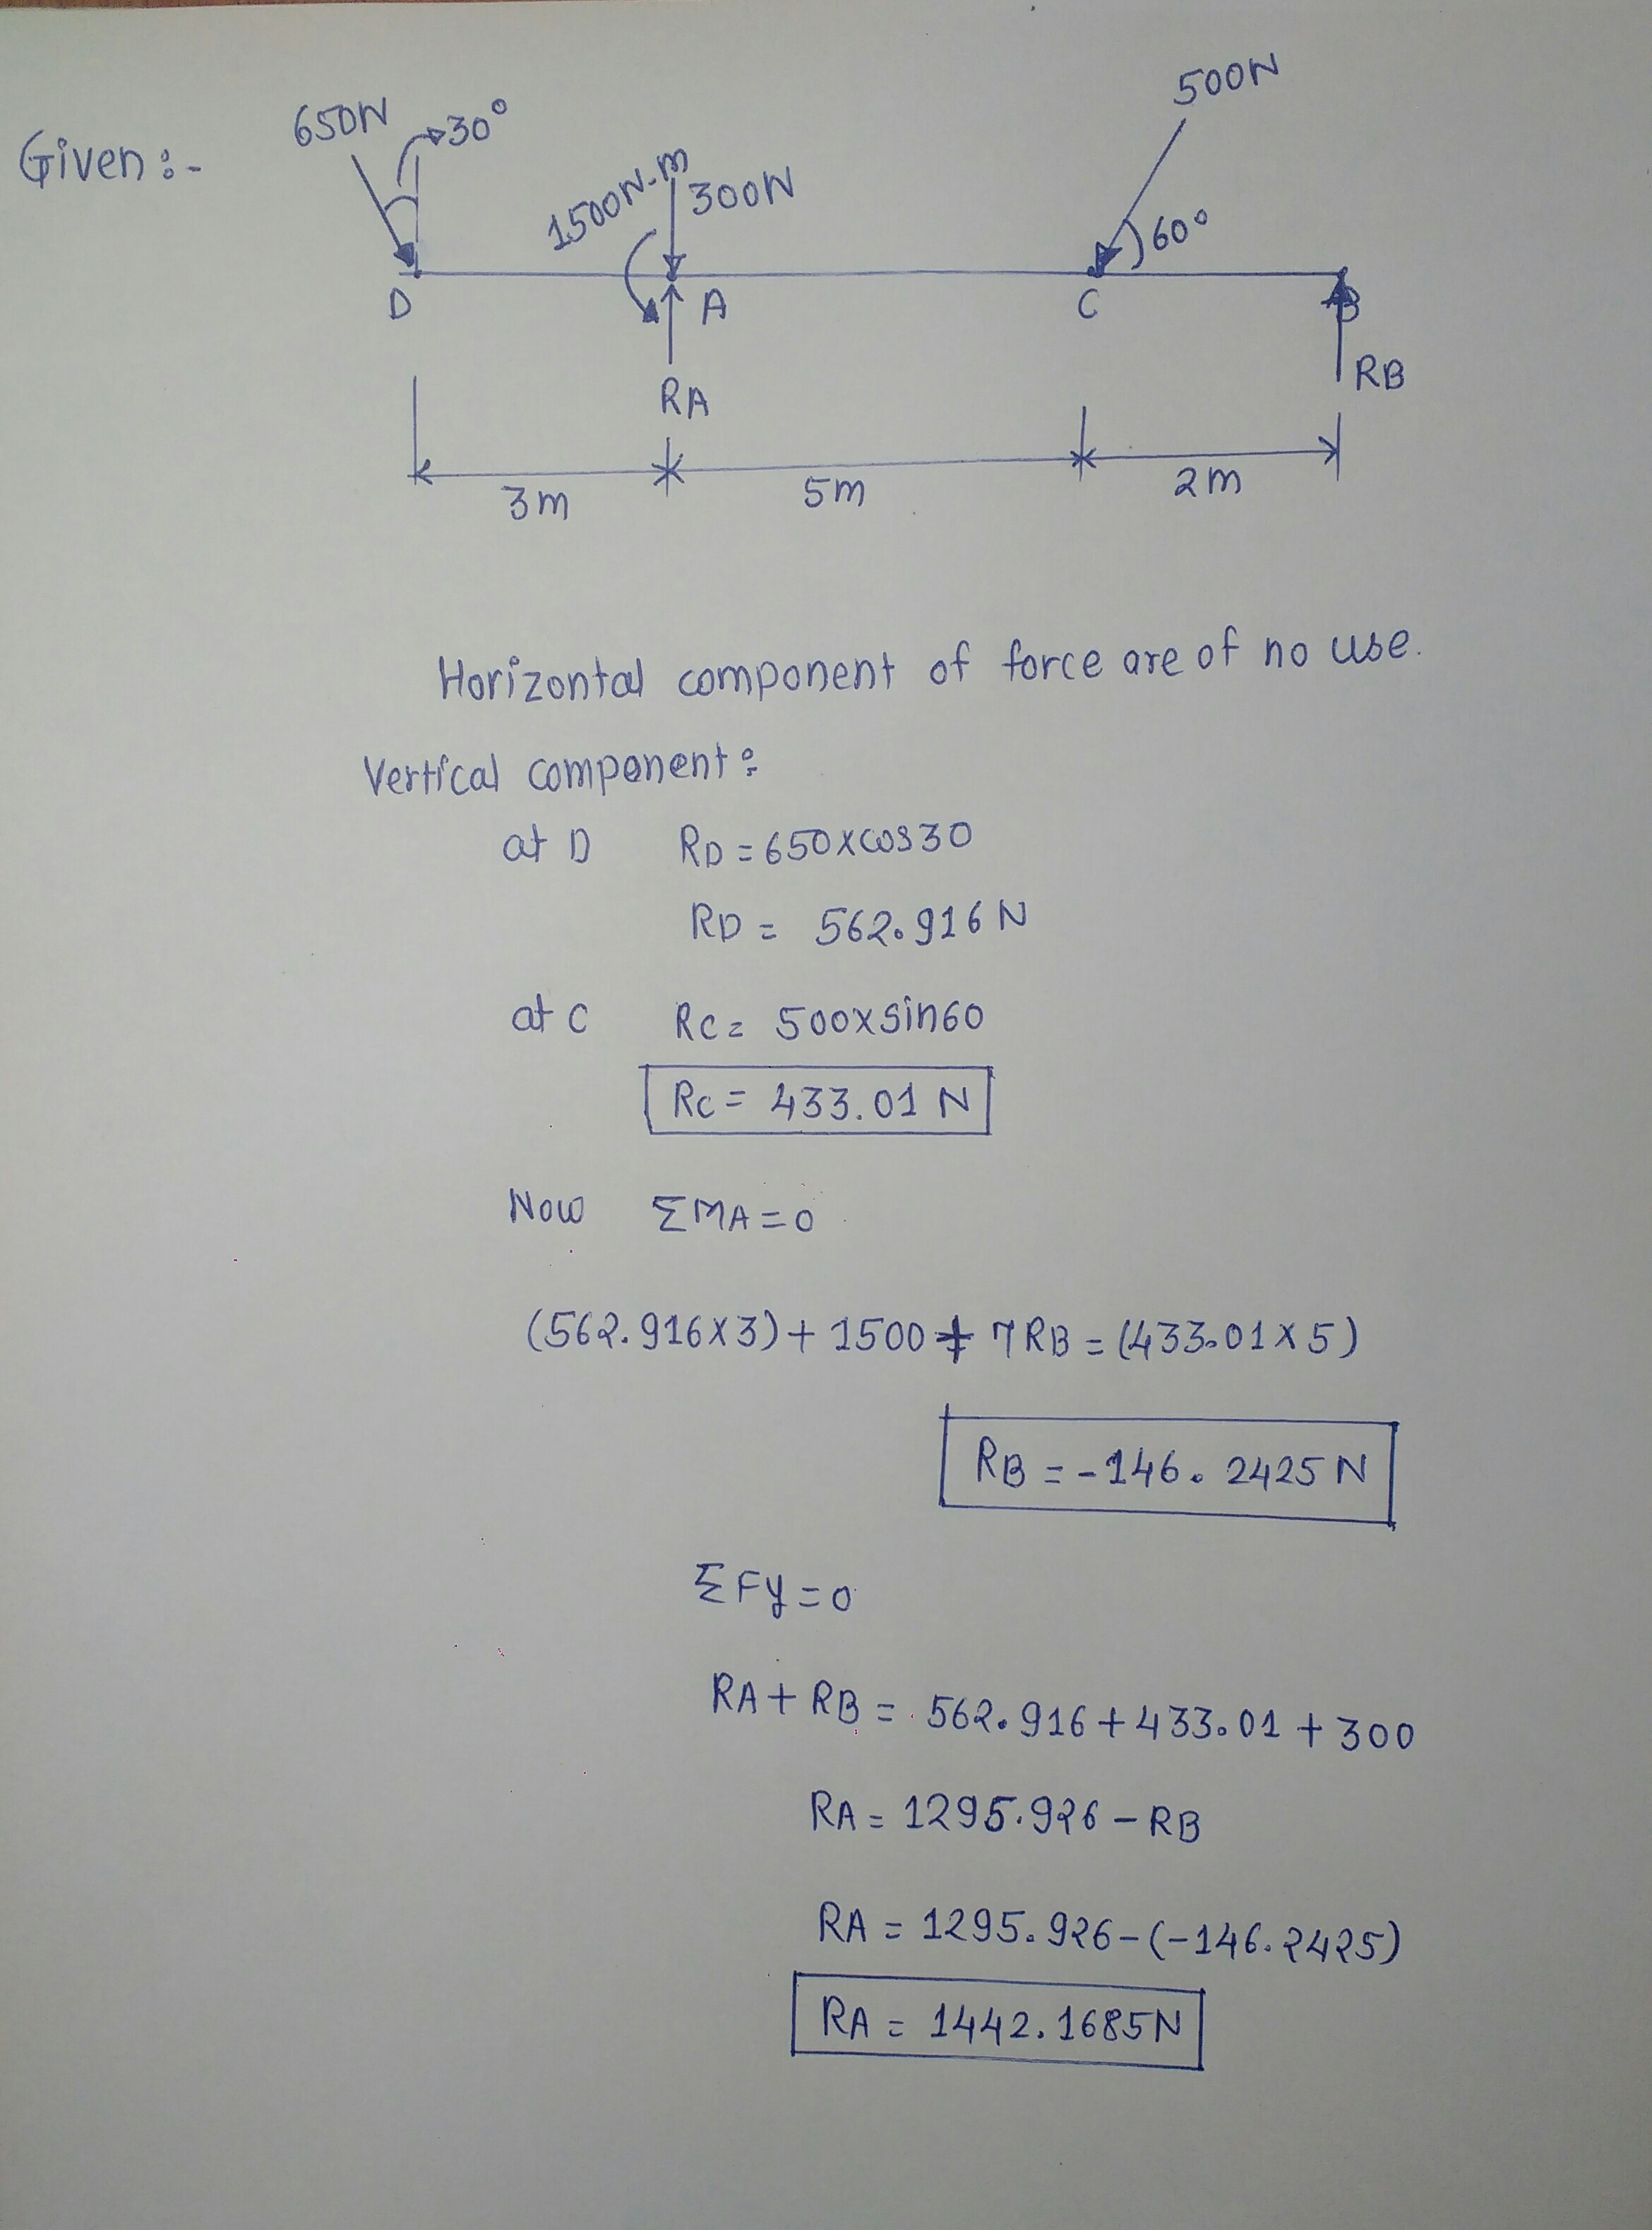 Given :-
650N
30°
1500N-m
300N
500N
60°
D
A
C
B
RA
RB
3m
5m
2m
Horizontal component of force are of no use.
Vertical component :
at D RD = 650xcos30
RD = 562.916 N
at C RC = 500xsin60
RC = 433.01 N
Now ΣMA=0
(562.916x3)+ 1500 + 7RB = (433.01x5)
RB = -146.2425 N
ΣFy=0
RA + RB = 562.916+433.01 + 300
RA = 1295.926 - RB
RA = 1295.926-(-146.2425)
RA = 1442.1685N